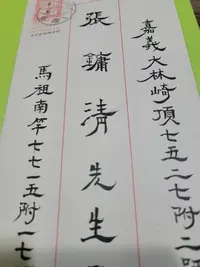 嘉義大林崎頂七五二七附二
張鏞清先生
馬祖南竿七七一五附一七